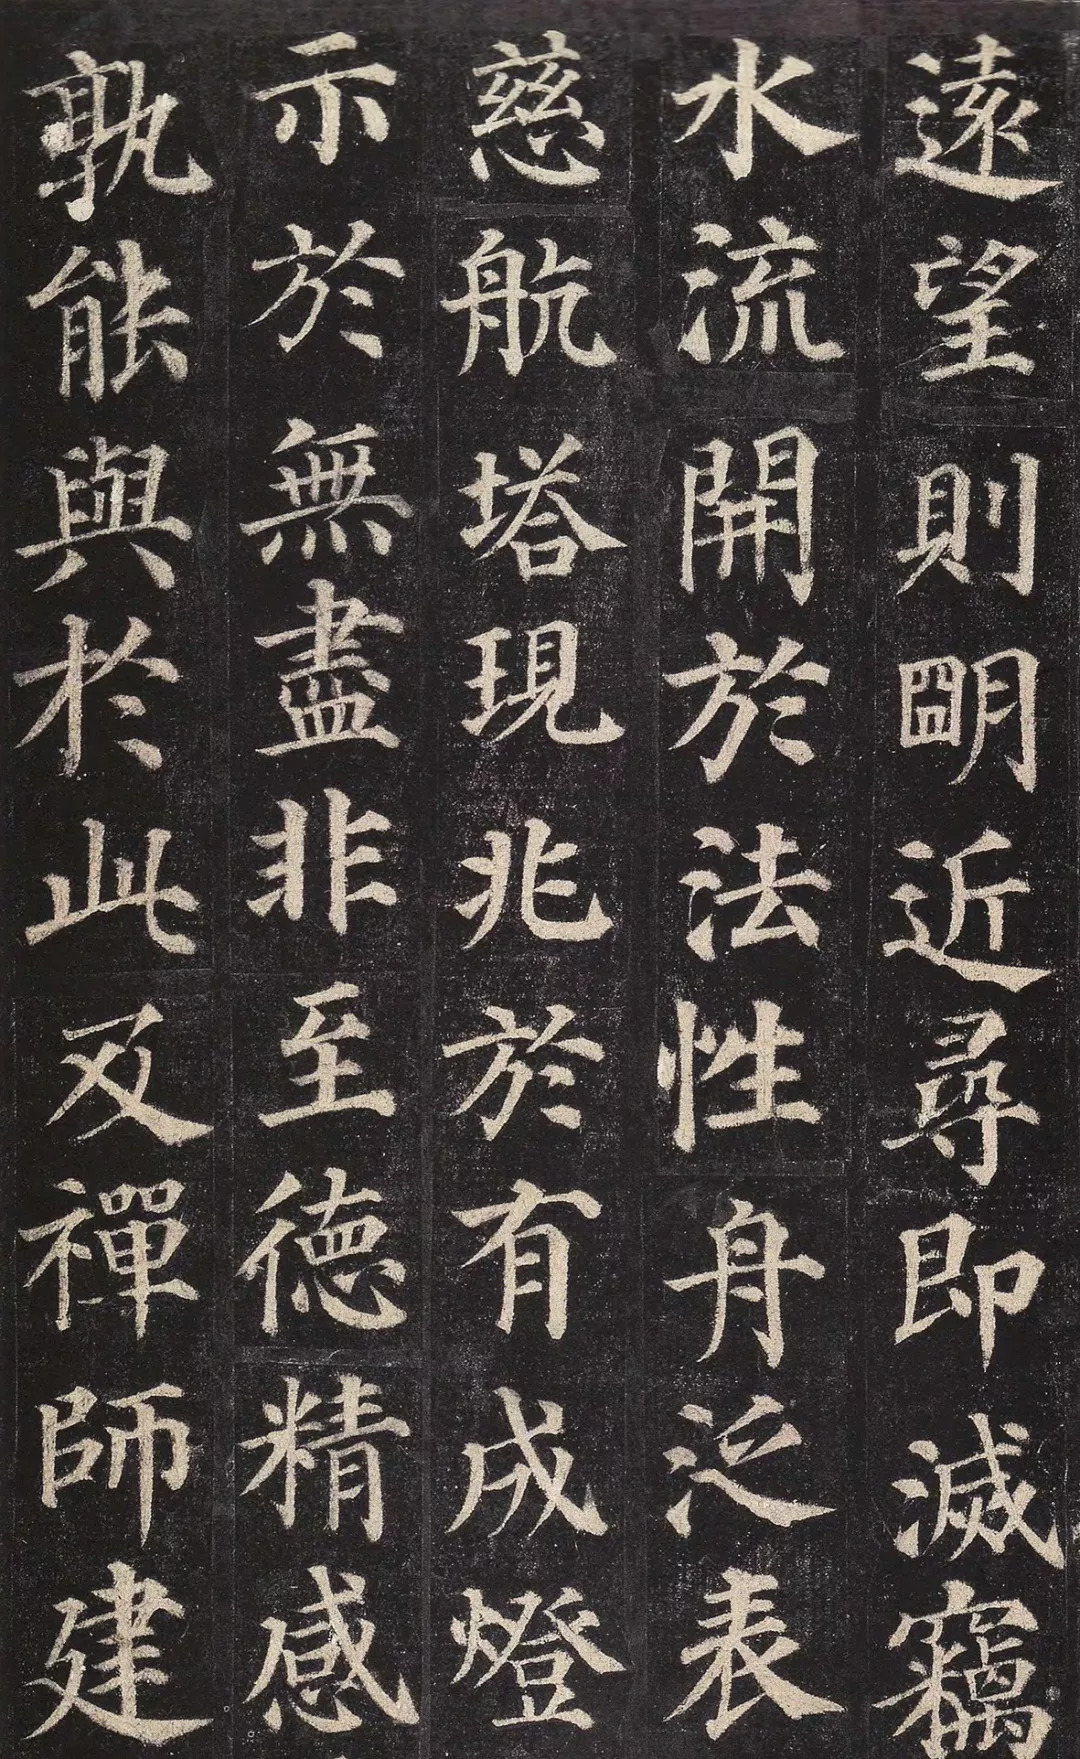 遠望則明近尋即滅竊
水流開於法性舟泛表
慈航塔現兆於有成燈
示於無盡非至德精感
孰能與於此及禪師建